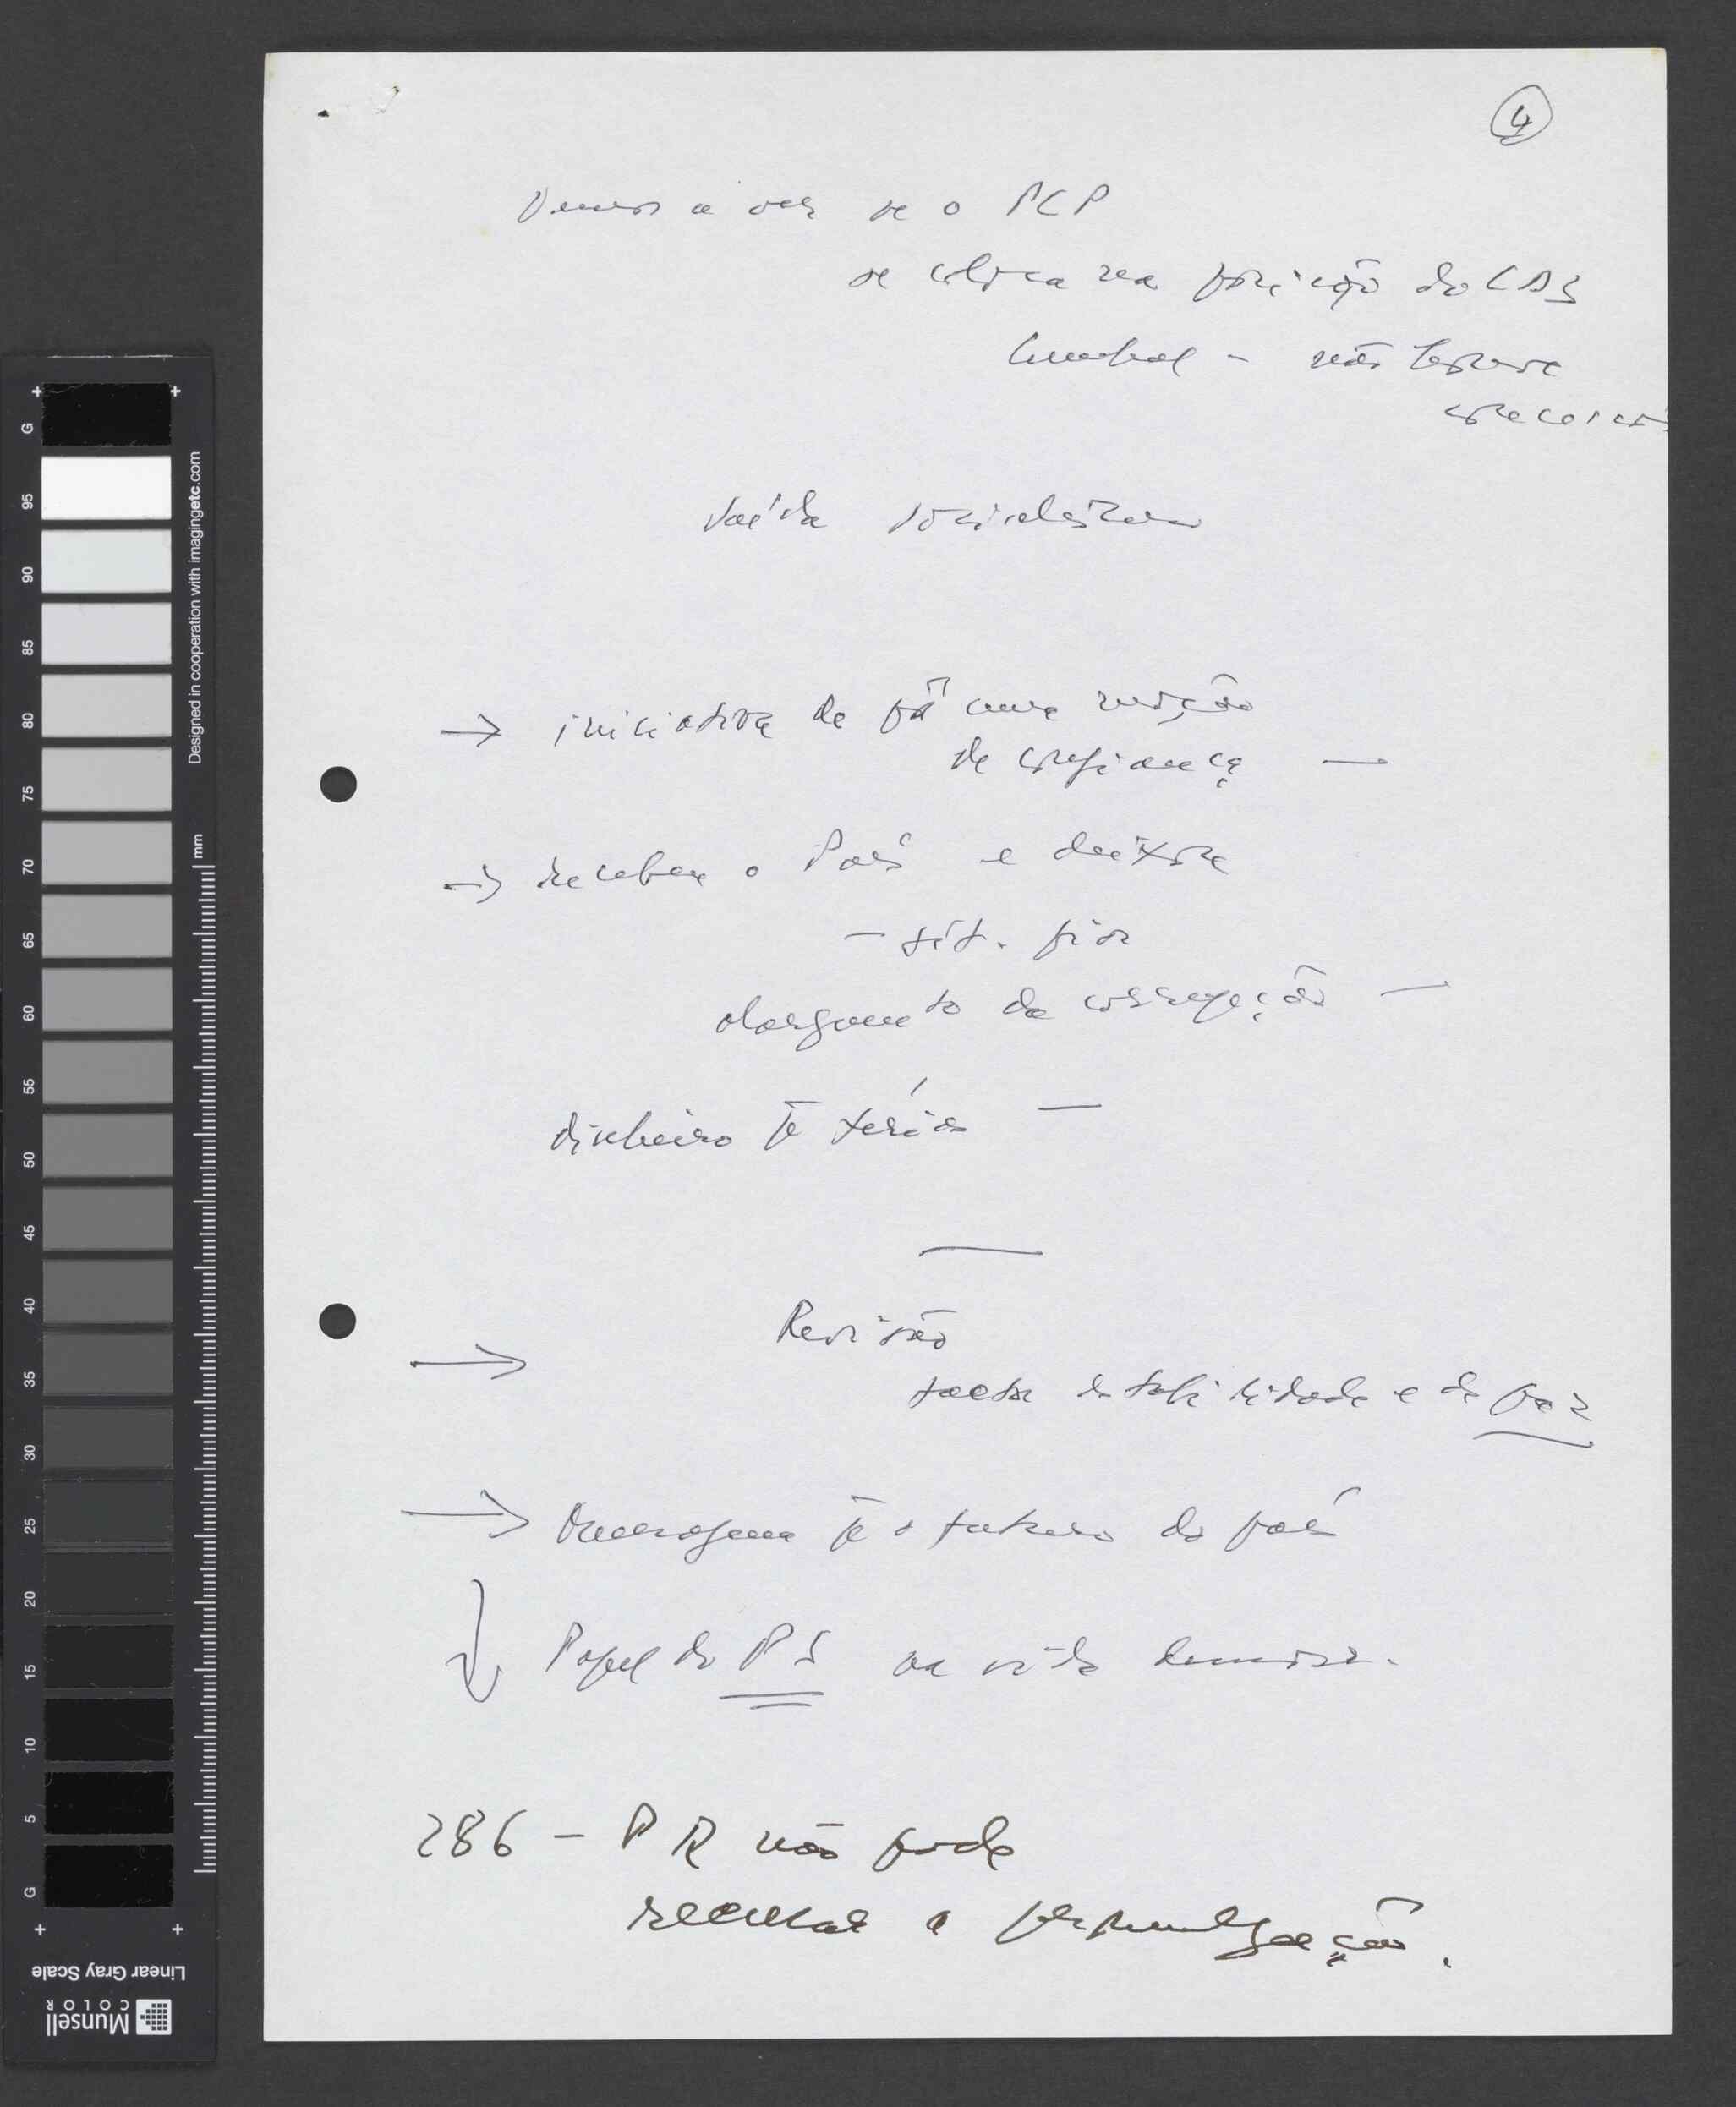 4
Vamos a ver se o PCP
se coloca na posição do CDS
não
saída socialista
→ iniciativa de pôr uma moção
de confiança —
→ recebem o País e deixam
— sit. pior
alargamento da corrupção —
dinheiro p.ª férias —
Revisão
→ factor estabilidade e de paz
→ Mensagem p.ª o futuro do país
↓ Papel do PS na vida democr.
286 – PR não pode
recusar a promulgação.
G
95
90
85
80
75
70
65
60
55
50
45
40
35
30
25
20
15
10
5
G
mm
Designed in cooperation with imagingetc.com
Linear Gray Scale
Munsell
COLOR